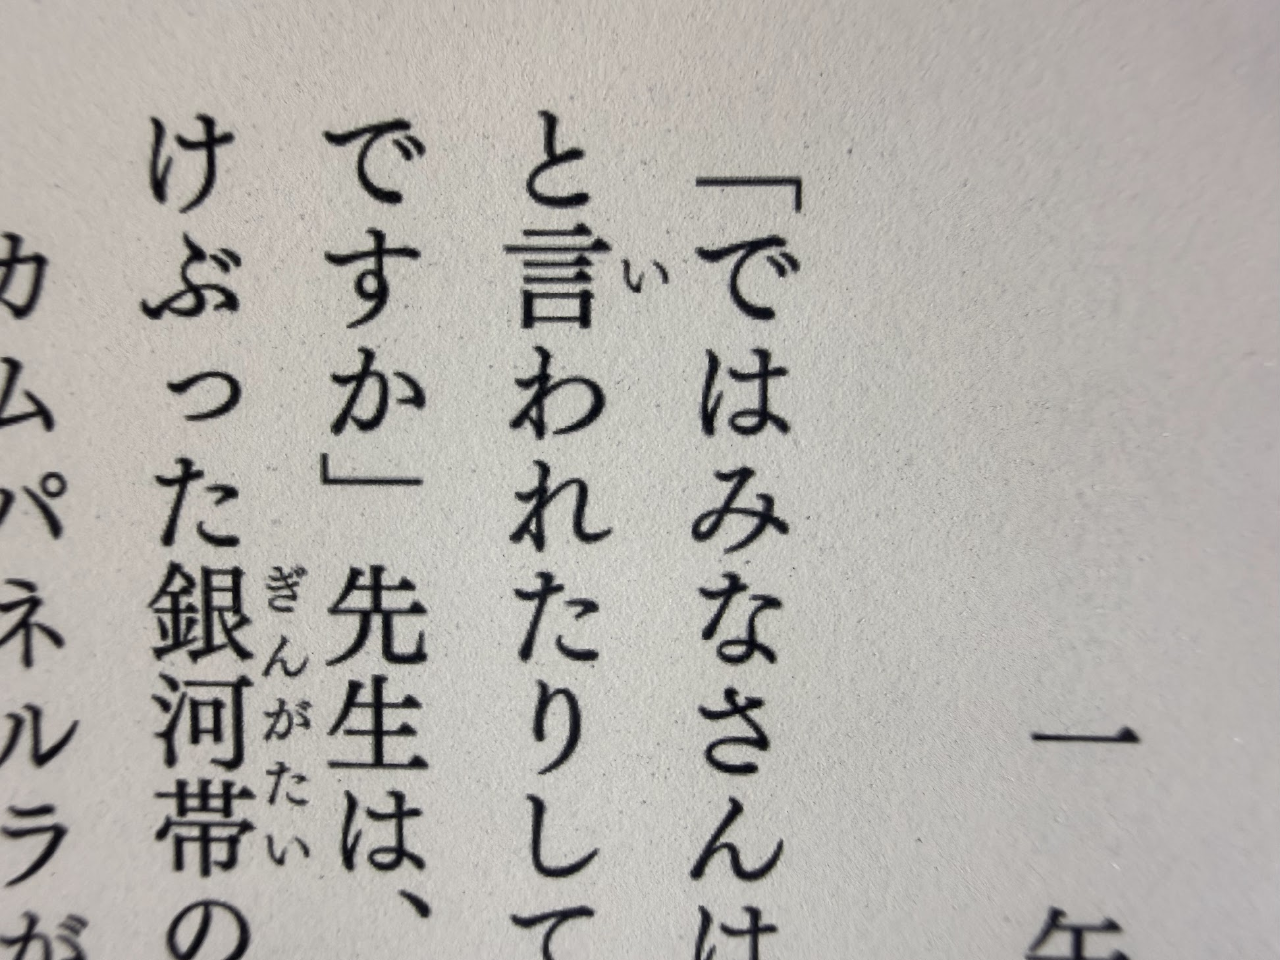 一 午
「ではみなさんは
と言われたりして
ですか」先生は、
けぶった銀河帯の
カムパネルラが